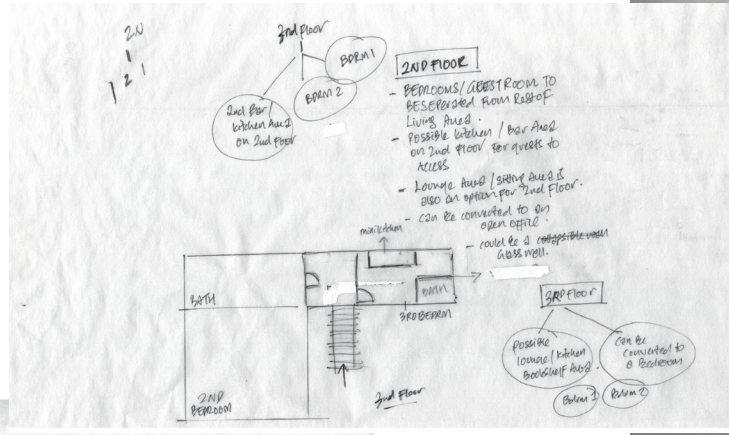 2.0
1
1 2 1
2nd Floor
BDRM 1
BDRM 2
2nd Bar /
kitchen Area
on 2nd Floor
2ND FLOOR
- BEDROOMS / GEESTROOM TO
BE SEPERATED From Rest of
Living Area.
- Possible kitchen / Bar Area
on 2nd Floor for guests to
Access
- Lounge Area / sitting Area is
also an option for 2nd Floor.
- can be converted to an
open office.
- could be a
Glass wall.
minikitchen
BATH
BATH
3RD BEDRM
2ND
BEDROOM
2nd Floor
3RD Floor
Possible
lounge / kitchen
Bookshelf Area.
Can Be
Converted to
a Bedroom
Bdrm 1
Bdrm 2